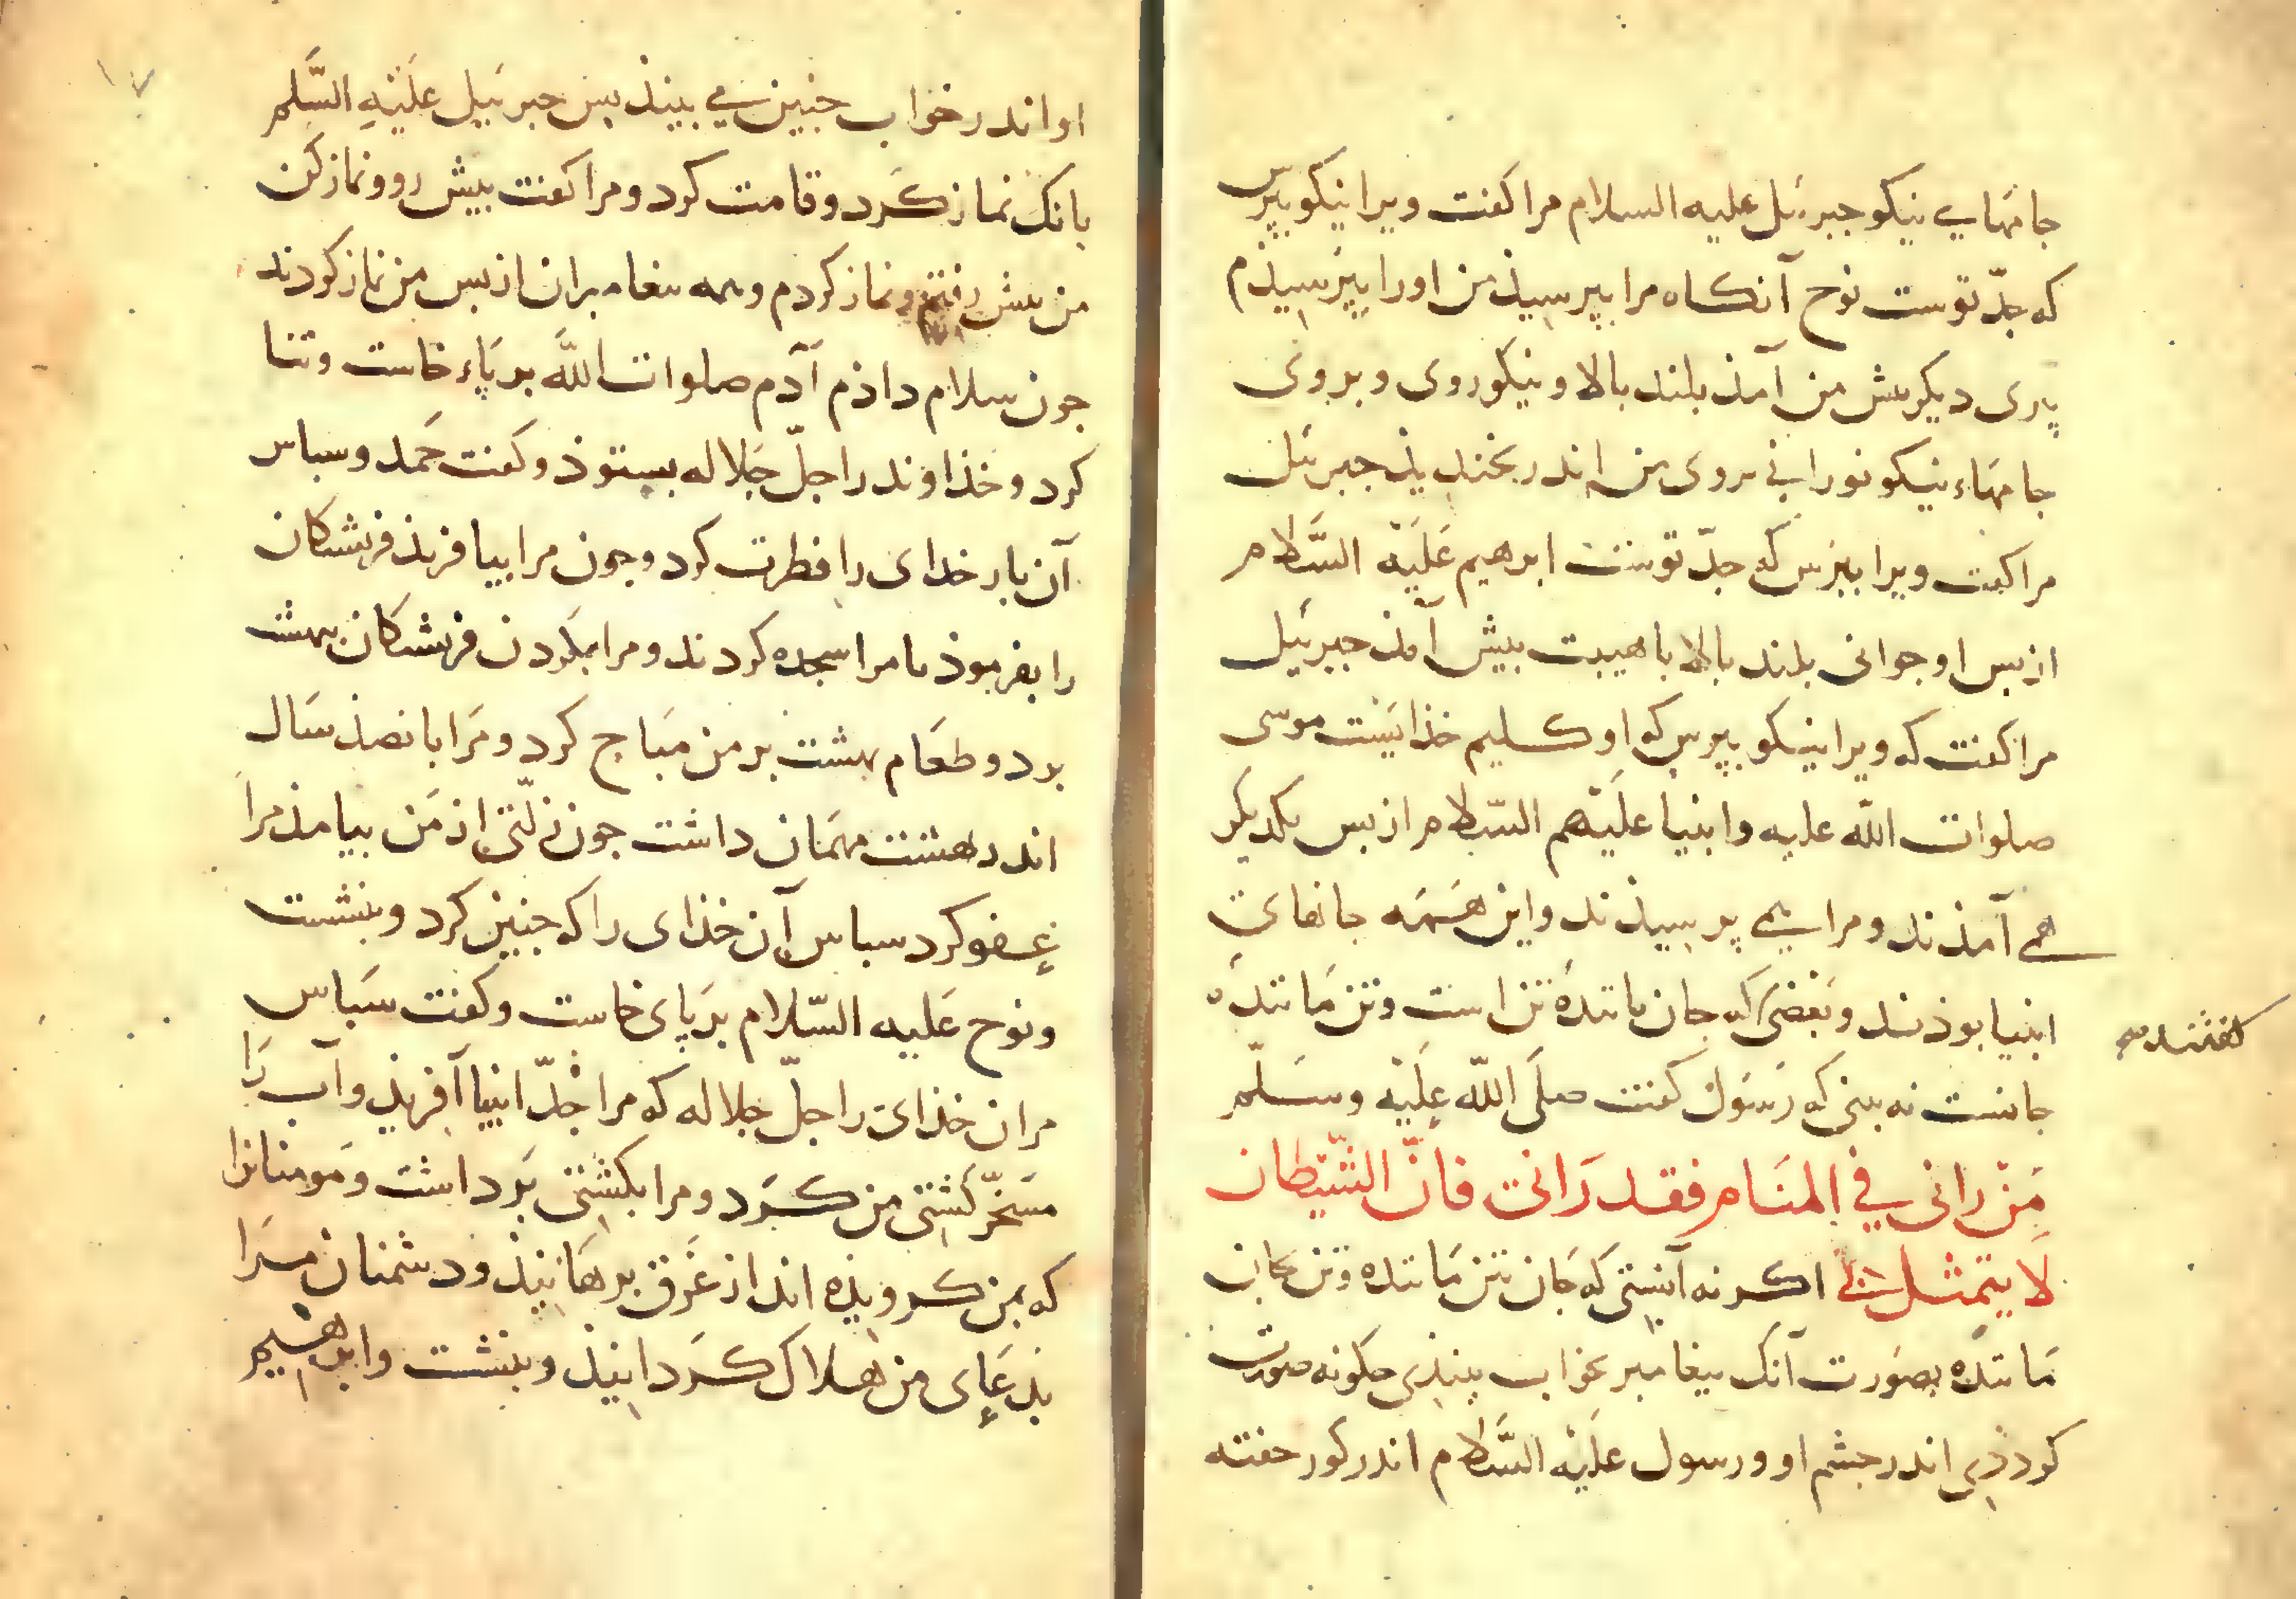 جامهای نیکو جبرئل علیه السلام مرا کفت ویرا نیکو بپرس
که جدّ توست نوح آنکاه مرا بپرسیذ من اورا بپرسیذم
پری دیکر بیش من آمذ بلند بالا و نیکوروی و بروی
جامهاء نیکو نورانی بروی من اندر بخندیذ جبرئل
مرا کفت ویرا بپرس که جدّ توست ابرهیم عَلَیْه السَّلام
از بس او جوانی بلند بالا با هیبت بیش آمذ جبرئیل
مرا کفت که ویرا نیکو بپرس که او کلیم خذایَست موسی
صلوات اللّه علیه وانبیا علَیْهم السّلام از بس یکدیکر
همی آمذند و مرا می پرسیذند واین هَمَه جانهای
انبیا بوذند وبَعْضی که جان مانندهٔ تن است وتن مَاننده
کفتند
جانست نه بینی که رَسُول کفت صلَی اللّه علَیْه وسَلّم
مَنْ رانی فی المنَام فقد رَانی فانّ الشّیطان
لا یتمثل بی اکر نه آنستی که جَان بتن مَاننده وتن بجان
مَاننده بصورت آنک بیغامبر بخواب بینذی جکونه صورت
کرددی اندر جشم او ورسول علَیْه السَّلام اندر کور خفته
او اندر خواب جنین می بینذ بس جبرئیل علَیْهِ السَّلم
بانک نماز کَرد وقامت کرد ومرا کفت بیش رو ونماز کن
من بیش رفتم ونماز کردم وهمه بیغامبران از بس من نماز کردند
جون سلام داذم آدم صلوات اللّه بر پَاء خاست وثنا
کرد وخذاوند را جلّ جَلاله بستوذ وکفت حَمد وسباس
آن بار خدای را فطرت کرد وجون مرا بیافریذ فریشتکان
را بفرموذ تا مرا سجده کردند ومرا بکردن فریشتکان ببهشت
برد وطعَام بهشت بر من مبَاح کرد ومَرا بانصذ سَال
اندر بهشت مهمَان داشت جون زلّتی از مَن بیامذ مرا
عفو کرد سباس آن خذای را که جنین کرد وبنشست
ونوح عَلیه السّلام بر پَای خاست وکفت سبَاس
مران خذای را جلّ جلاله که مرا جدّ انبیا آفریذ وآب رَا
مسَخّر کَشتی من کَرد ومرا بکشتی بَرداشت ومَومنانرا
که بمن کرویذه اند از غَرق برهَانیذ ودشمنان مرَا
بذعَای من هلاک کَردانیذ وبنشست وابرهیم
۱۷